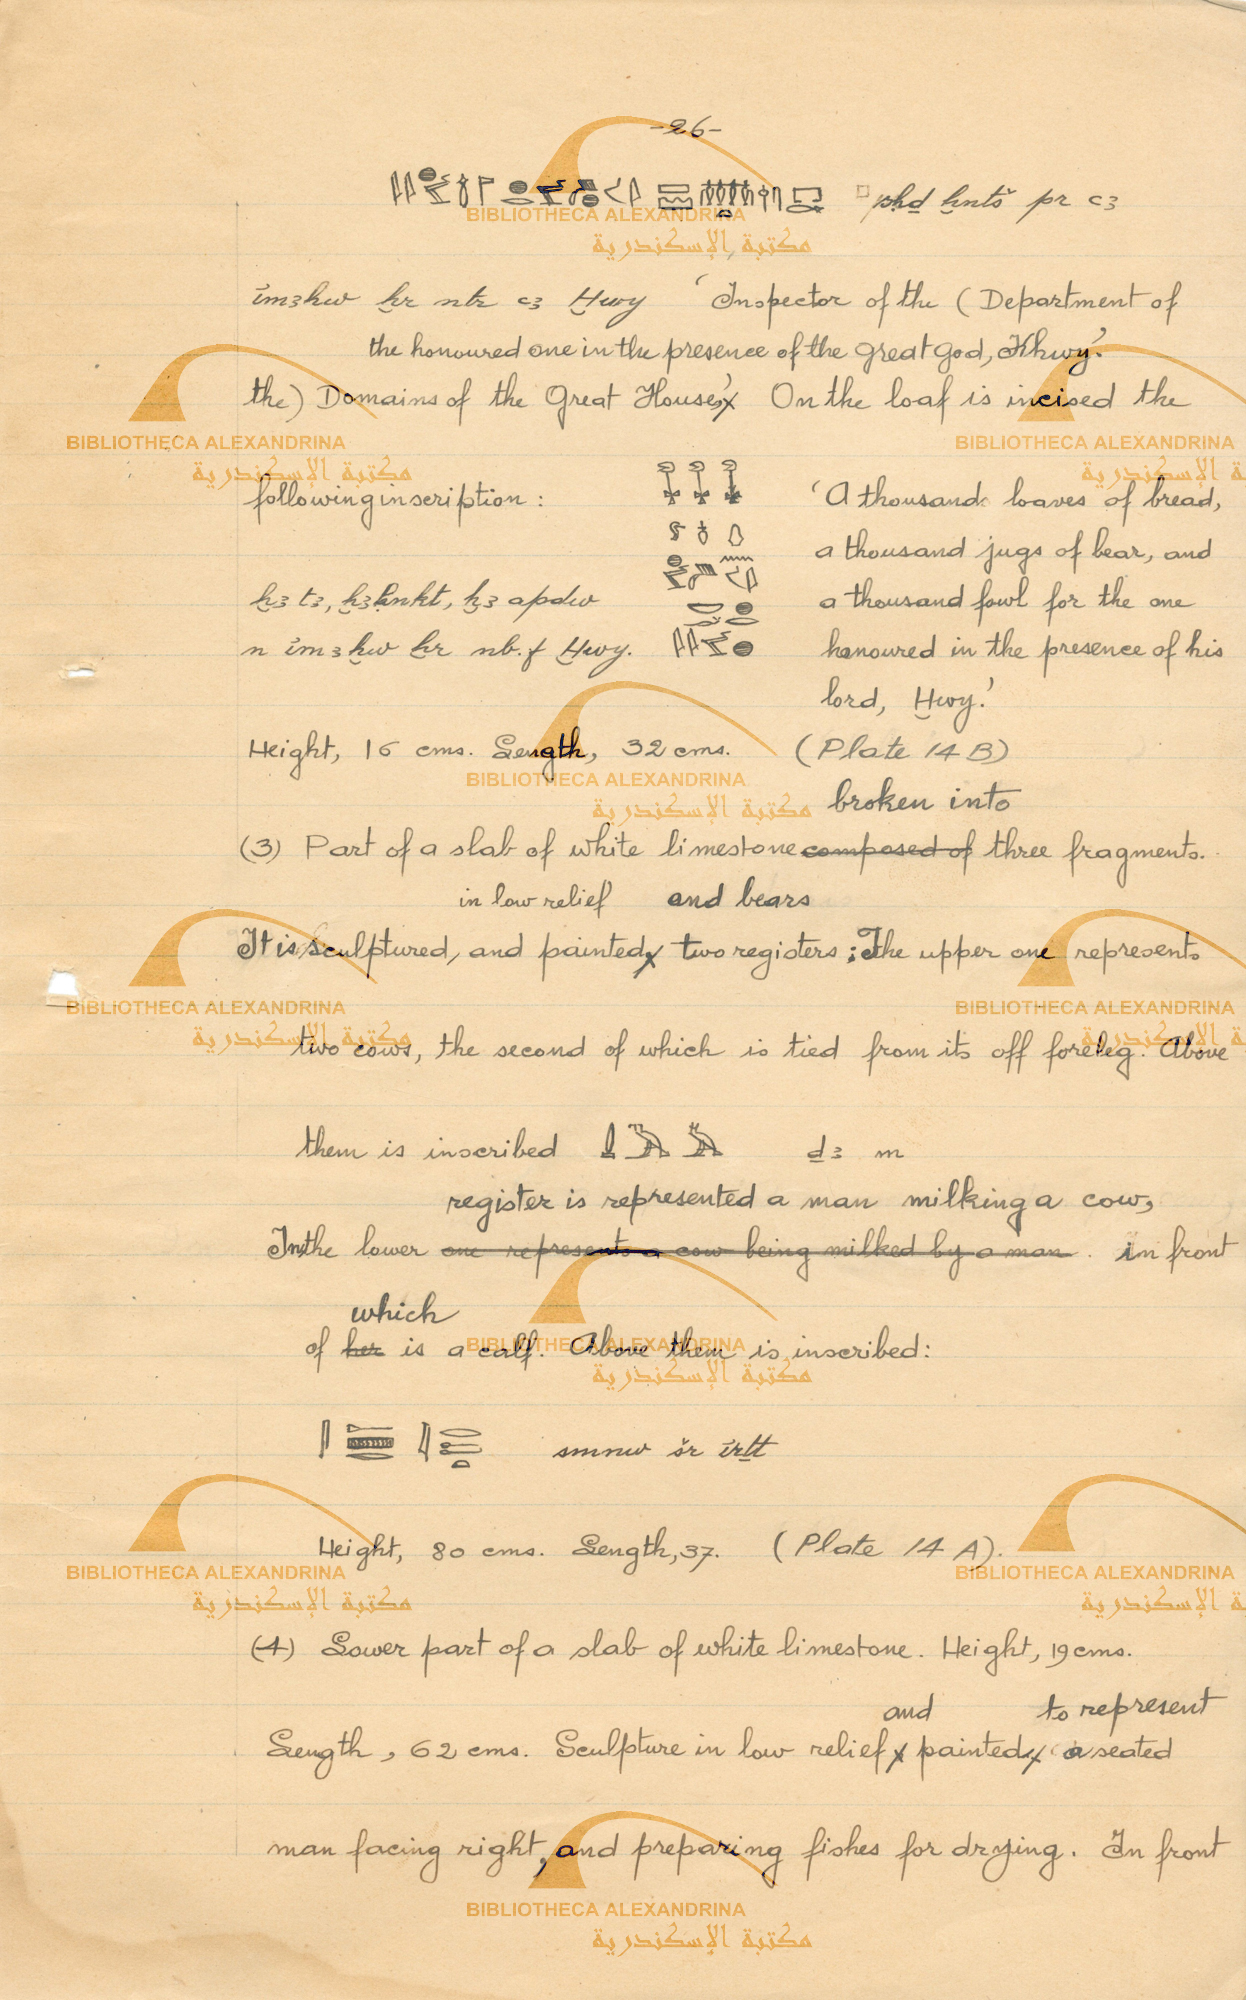 -26-
sḥḏ ḫntš pr c3
ỉm3ḫw ḫr nṯr c3 Ḫwy 'Inspector of the (Department of
the honoured one in the presence of the great god, Khwy.'
the) Domains of the Great House,' x On the loaf is incised the
following inscription : 'A thousand loaves of bread,
a thousand jugs of bear, and
ḫ3 t3, ḫ3 ḥnḳt, ḫ3 apdw a thousand fowl for the one
n ỉm3ḫw ḫr nb.f Ḫwy. honoured in the presence of his
lord, Ḫwy.'
Height, 16 cms. Length, 32 cms. (Plate 14 B)
broken into
(3) Part of a slab of white limestone composed of three fragments.
in low relief and bears
It is sculptured, and painted x two registers ; The upper one represents
two cows, the second of which is tied from its off foreleg. Above
them is inscribed ḏ3 m
register is represented a man milking a cow,
In the lower one represents a cow being milked by a man . in front
which
of her is a calf. Above them is inscribed:
smnw šr ỉrṯt
Height, 80 cms. Length, 37. (Plate 14 A).
(4) Lower part of a slab of white limestone. Height, 19 cms.
and to represent
Length, 62 cms. Sculpture in low relief x painted x a seated
man facing right, and preparing fishes for drying. In front
BIBLIOTHECA ALEXANDRINA
مكتبة الإسكندرية